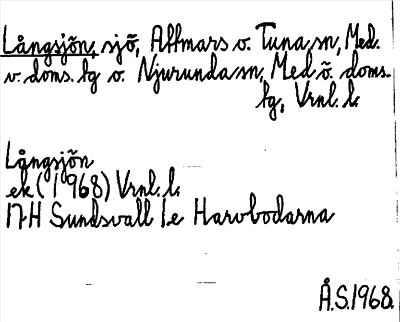 Långsjön, sjö, Attmars o. Tuna sn, Med.
v. doms. fg o. Njurunda sn, Med ö. doms.
fg, Vrnl. l.
Långsjön
ek (1968) Vrnl. l.
17H Sundsvall 1e Harvbodarna
Å.S. 1968.